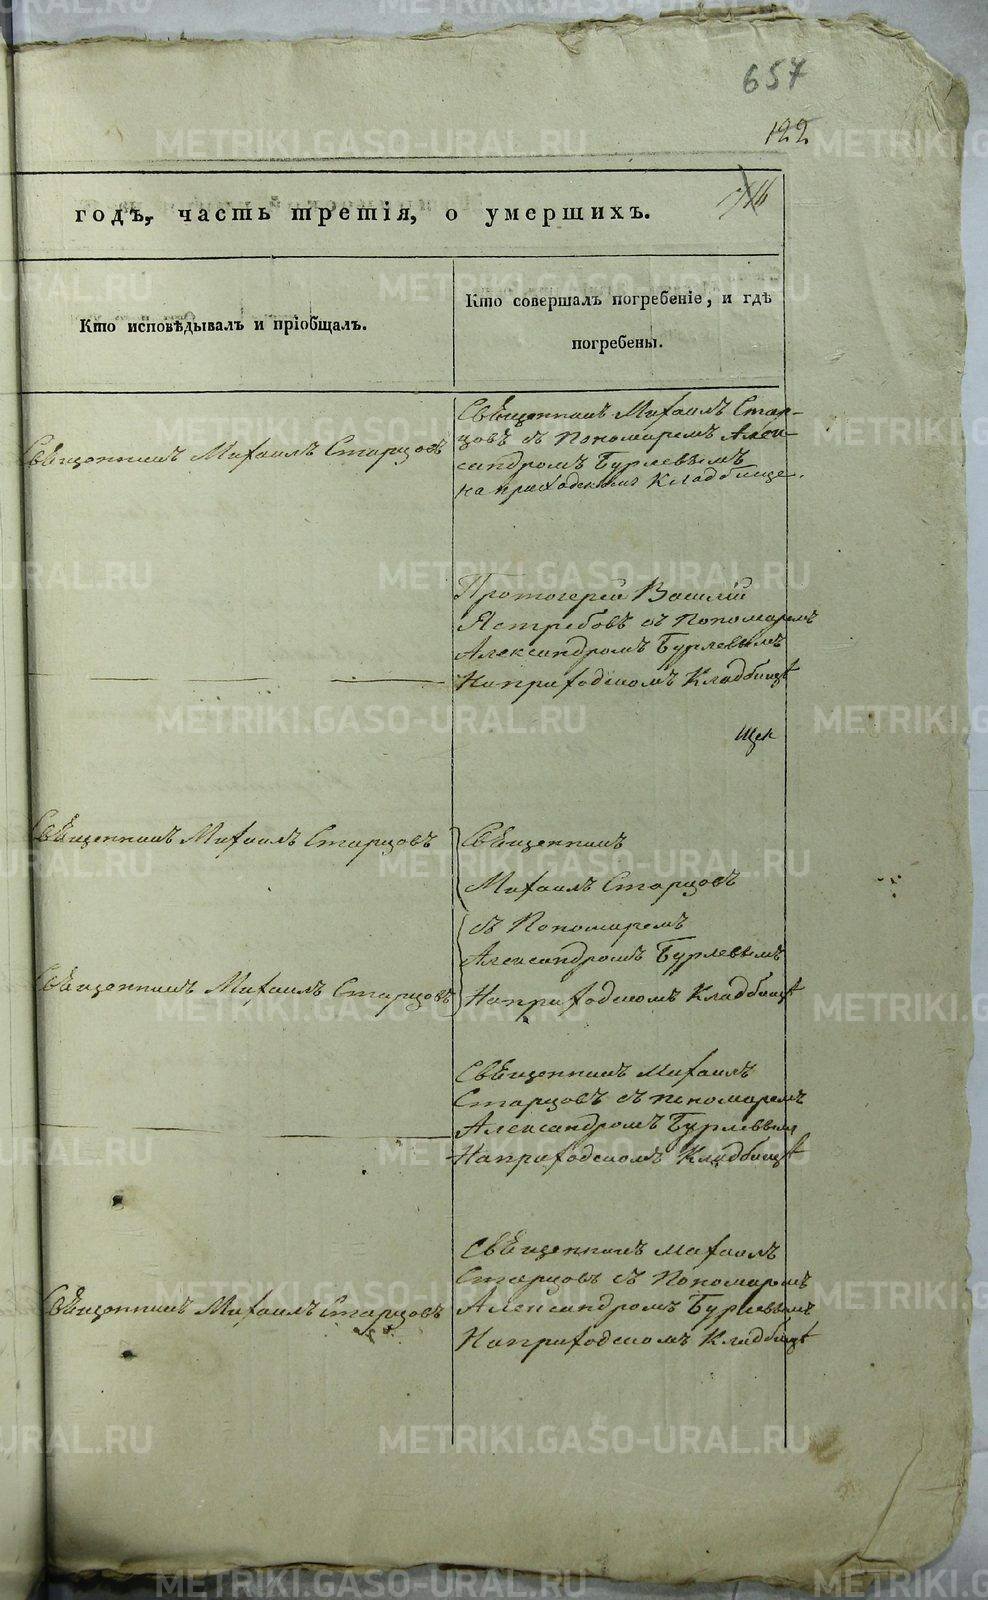 657
122
годъ, часть третія, о умершихъ.
Кто исповѣдывалъ и пріобщалъ.
Кто совершалъ погребеніе, и гдѣ
погребены.
Священникъ Михаилъ Старцовъ
Священникъ Михаилъ Стар-
цовъ съ Пономаремъ Алек-
сандромъ Бурлевымъ
на приходскомъ Кладбище.
Протоіерей Василій
Ястребовъ съ Пономаремъ
Александромъ Бурлевымъ
На приходскомъ Кладбищѣ
Священникъ Михаилъ Старцовъ
Священникъ
Михаилъ Старцовъ
съ Пономаремъ
Александромъ Бурлевымъ
Священникъ Михаилъ Старцовъ
На приходскомъ Кладбищѣ
Священникъ Михаилъ
Старцовъ съ пономаремъ
Александромъ Бурлевымъ
На приходскомъ Кладбищѣ
Священникъ Михаилъ Старцовъ
Священникъ Михаилъ
Старцовъ съ Пономаремъ
Александромъ Бурлевымъ
На приходскомъ Кладбищѣ
METRIKI.GASO-URAL.RU